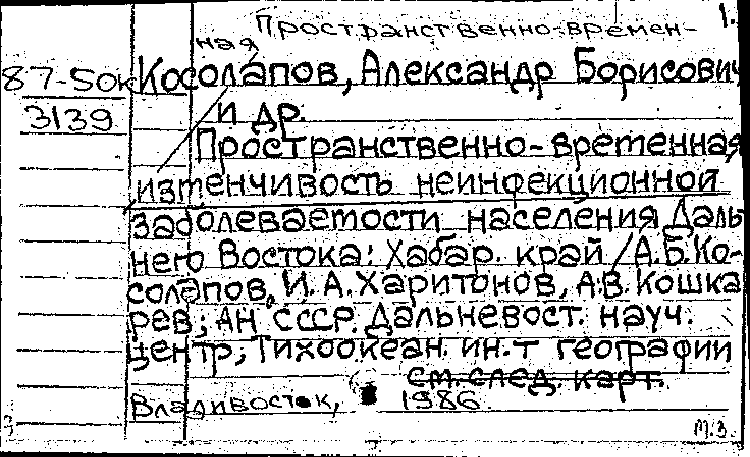 1.
Пространственно-времен-
ная
87-50к Косолапов, Александр Борисович
3139 и др.
Пространственно-временная
изменчивость неинфекционной
заболеваемости населения Даль
него Востока: Хабар. край / А.Б. Ко-
солапов, И.А. Харитонов, А.В. Кошка
рев; АН СССР. Дальневост. науч.
центр, Тихоокеан. ин-т географии
см. след. карт.
Владивосток, 1986
М.З.